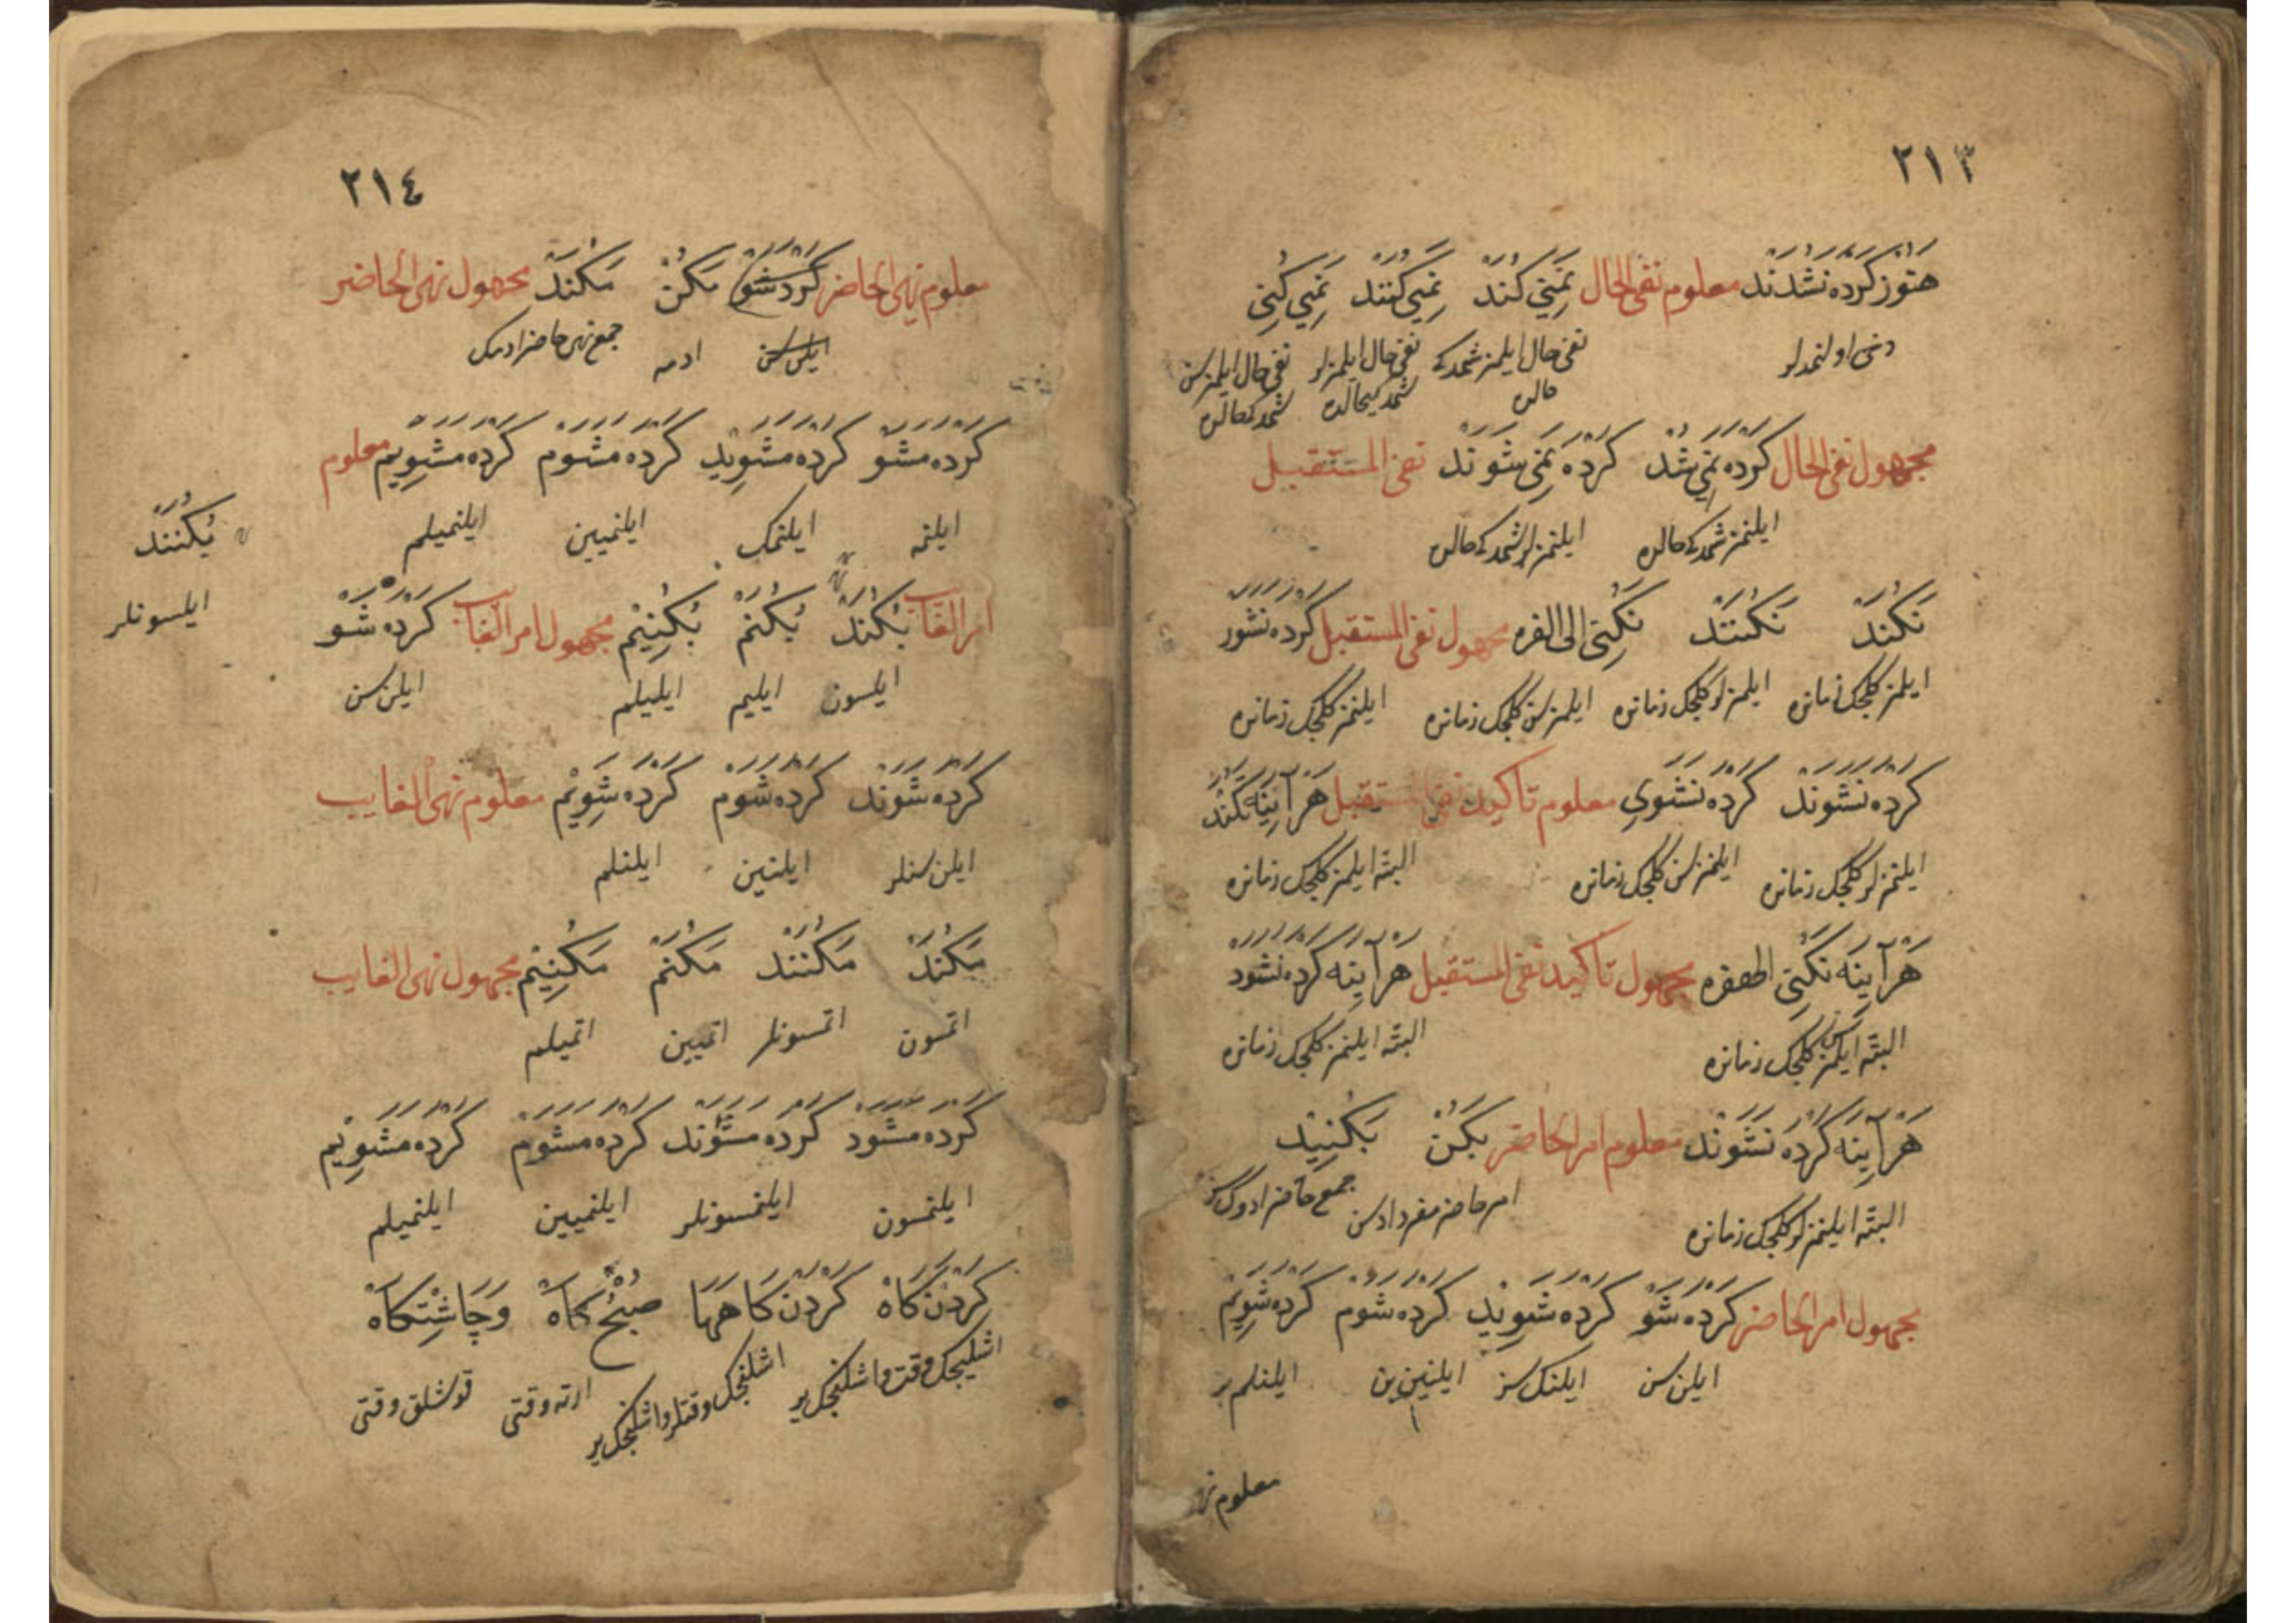 ٢١٣
هنوز کرده نشدند معلوم نفی الحال نمی کند نمی کنند نمی کنی
دخی اولنمدلر نفی حال ایلمز شمدیکی حالده نفی حال ایلمزلر شمدیکی حالده نفی حال ایلمزسن شمدیکی حالده
مجهول نفی الحال کرده نمی شد کرده نمی شوند نفی المستقبل
ایلنمز شمدیکی حالده ایلنمزلر شمدیکی حالده
نکند نکنند نکنی الی الفره مجهول نفی المستقبل کرده نشور
ایلمز کلجک زمانده ایلمزلر کلجک زمانده ایلمزسن کلجک زمانده ایلنمز کلجک زمانده
کرده نشوند کرده نشوی معلوم تاکید نفی المستقبل هرآینه نکند
ایلنمزلر کلجک زمانده ایلنمزسن کلجک زمانده البته ایلمز کلجک زمانده
هرآینه نکنی مجهول تاکید نفی المستقبل هرآینه کرده نشود
البته ایلمزسن کلجک زمانده البته ایلنمز کلجک زمانده
هرآینه کرده نشوند معلوم امر الحاضر بکن بکنید
البته ایلنمزلر کلجک زمانده امر حاضر مفرد ادسن جمع حاضر ادوکسز
مجهول امر الحاضر کرده شو کرده شوید کرده شوم کرده شویم
ایلن سن ایلنک سز ایلنین بن ایلنلم بز
معلوم نهی
٢١٤
معلوم نهی الحاضر کرد شو مکن مکند مجهول نهی الحاضر
ایلن سن ادمه جمع نهی حاضر ادمک
کرده مشو کرده مشوید کرده مشوم کرده مشویم معلوم
ایلنمه ایلنمک ایلنمیین ایلنمیلم
بکنند
ایلسونلر
امر الغایب بکند بکنم بکنیم مجهول امر الغایب کرده شو
ایلسون ایلیم ایلیلم ایلن سن
کرده شوند کرده شوم کرده شویم معلوم نهی الغایب
ایلن سنلر ایلنین ایلنلم
مکند مکنند مکنم مکنیم مجهول نهی الغایب
اتمسون اتمسونلر اتمیین اتمیلم
کرده مشود کرده مشوند کرده مشوم کرده مشویم
ایلنمسون ایلنمسونلر ایلنمیین ایلنمیلم
کردن کاه کردن کاهها صبح کاه وچاشتکاه
اشلیجک وقت واشلنجک یر اشلنجک وقتلر واشلنجک یر ارته وقتی قوشلق وقتی